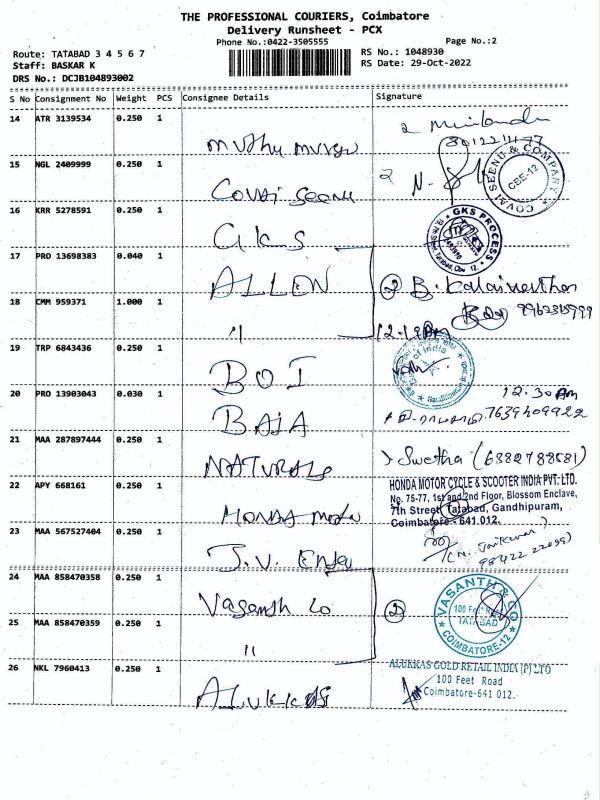 THE PROFESSIONAL COURIERS, Coimbatore
Delivery Runsheet - PCX
Phone No.:0422-3505555
Page No.:2
Route: TATABAD 3 4 5 6 7
Staff: BASKAR K
DRS No.: DCJB104893002
RS No.: 1048930
RS Date: 29-Oct-2022
S No Consignment No Weight PCS Consignee Details Signature
14 ATR 3139534 0.250 1
muthu murugan
2
15 NGL 2409999 0.250 1
Covai Seenu
2 N.
COVAI SEENU & COMPANY
CBE-12
16 KRR 5278591 0.250 1
GKS
GKS PROCESS
17 PRO 13698383 0.040 1
ALLEN
2 B.
18 CMM 959371 1.000 1
"
12.19 Pm
19 TRP 6843436 0.250 1
BOI
of India
20 PRO 13903043 0.030 1
BAJA
12.30 Pm
7639409922
21 MAA 287897444 0.250 1
NATURALS
Swetha (6382788581)
22 APY 668161 0.250 1
HONDA moto
HONDA MOTOR CYCLE & SCOOTER INDIA PVT. LTD.
No. 75-77, 1st and 2nd Floor, Blossom Enclave,
7th Street, Tatabad, Gandhipuram,
Coimbatore - 641 012.
23 MAA 567527404 0.250 1
J.V.
98422 22099
24 MAA 858470358 0.250 1
Vasanth Co
2
VASANTH & CO
100 Feet
TATABAD
COIMBATORE-12
25 MAA 858470359 0.250 1
"
26 NKL 7960413 0.250 1
ALUKKAS
ALUKKAS GOLD RETAIL INDIA (P) LTD
100 Feet Road
Coimbatore-641 012.